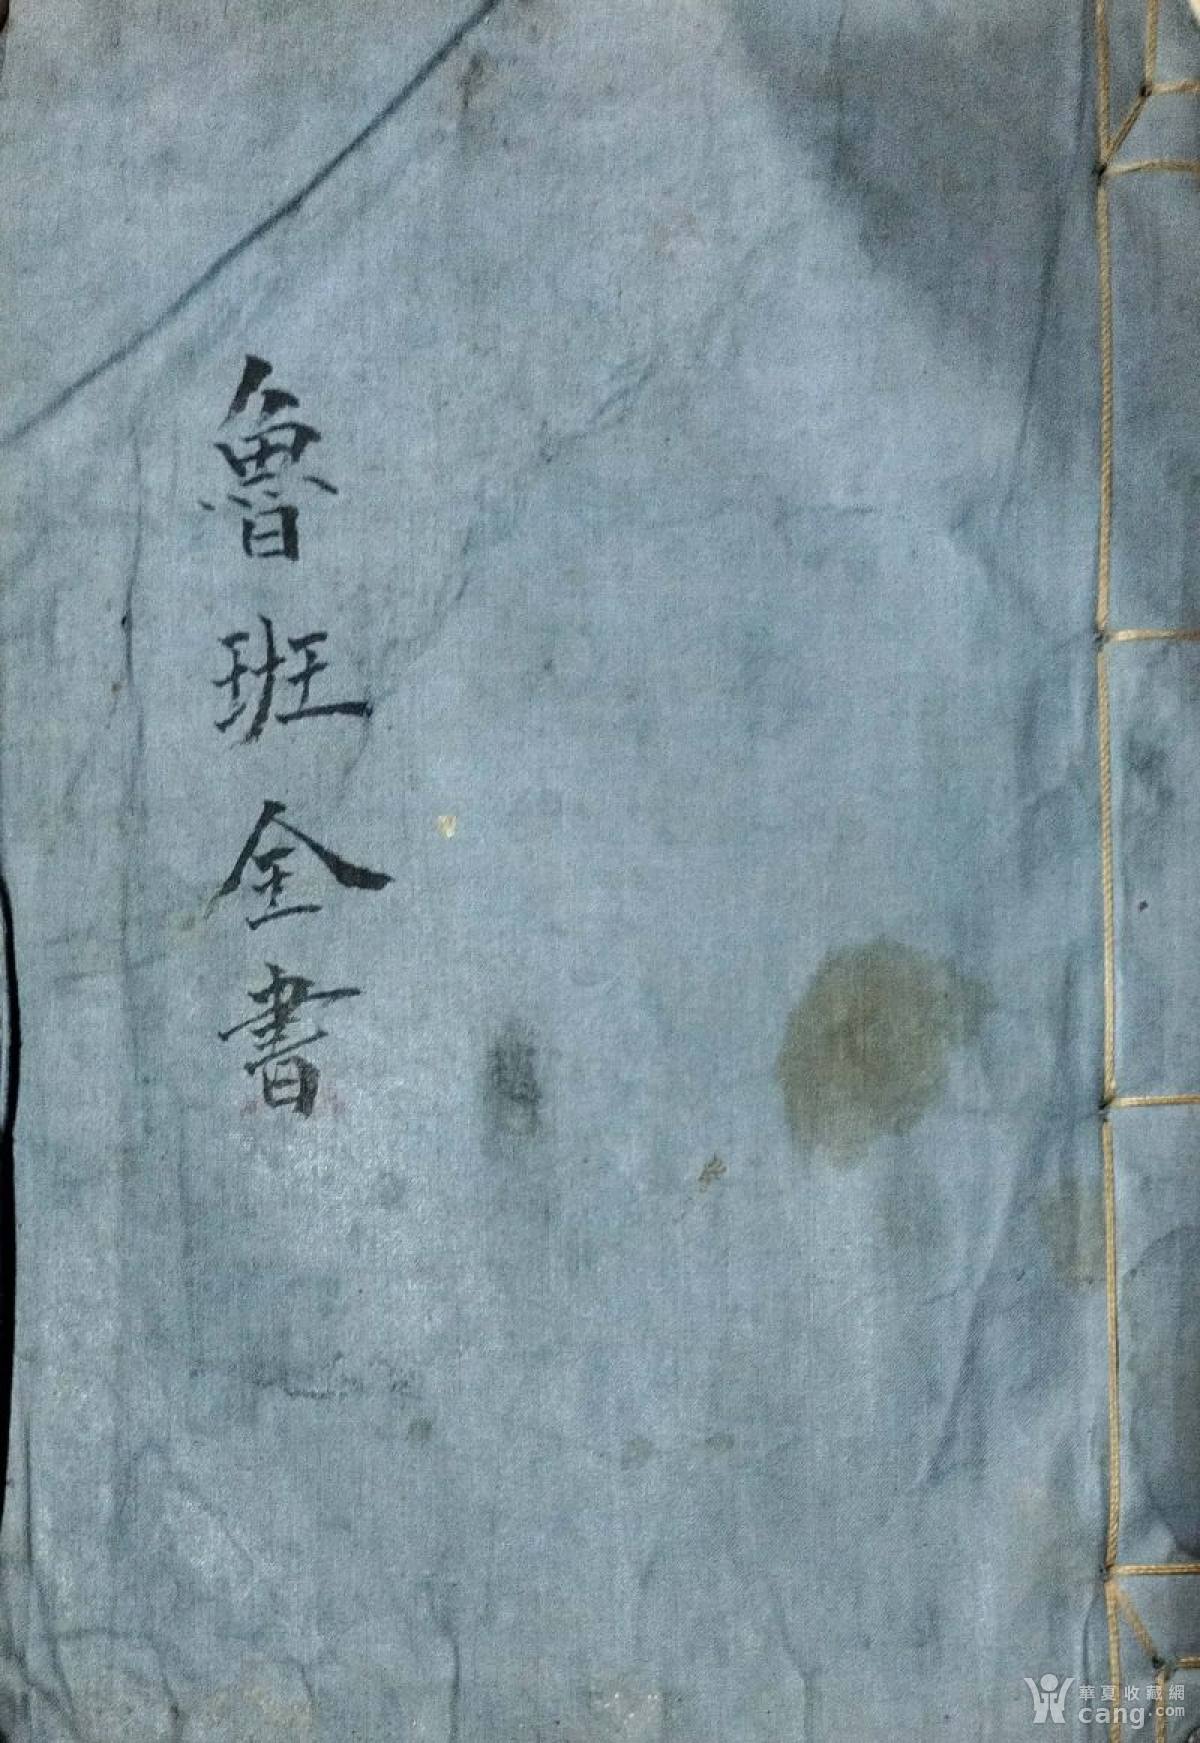 魯班全書
華夏收藏網
cang.com